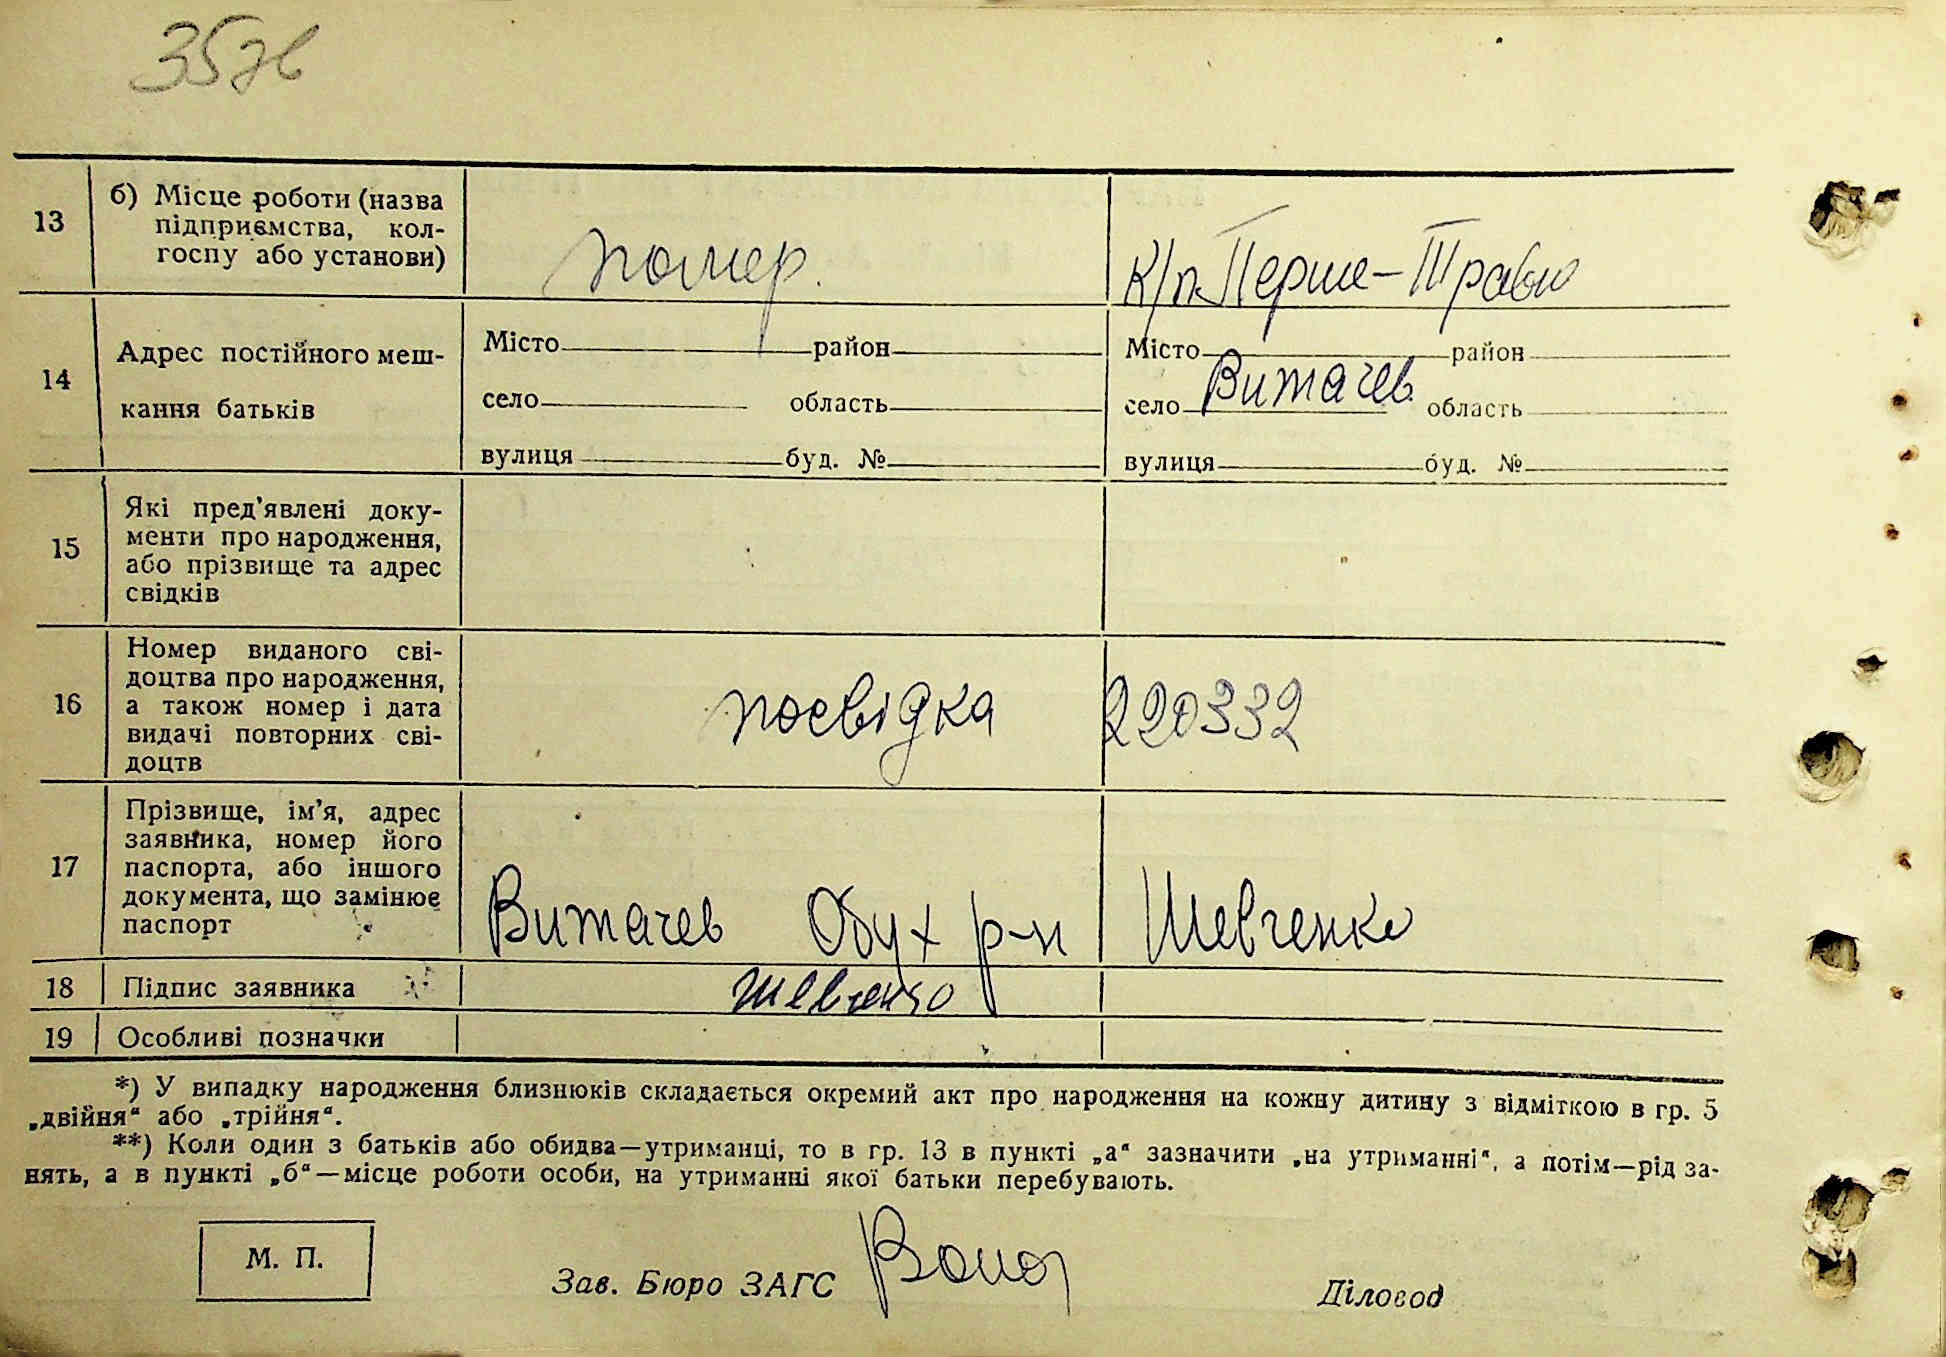 357в
13
б) Місце роботи (назва
підприємства, кол-
госпу або установи)
помер.
к/п. Перше-Травн
14
Адрес постійного меш-
кання батьків
Місто район
село область
вулиця буд. №
Місто район
село Витачев область
вулиця буд. №
15
Які пред'явлені доку-
менти про народження,
або прізвище та адрес
свідків
16
Номер виданого сві-
доцтва про народження,
а також номер і дата
видачі повторних сві-
доцтв
посвідка 220332
17
Прізвище, ім'я, адрес
заявника, номер його
паспорта, або іншого
документа, що замінює
паспорт
Витачев Обух р-н Шевченко
18 Підпис заявника
Шевченко
19 Особливі позначки
*) У випадку народження близнюків складається окремий акт про народження на кожну дитину з відміткою в гр. 5
„двійня“ або „трійня“.
**) Коли один з батьків або обидва—утриманці, то в гр. 13 в пункті „а“ зазначити „на утриманні“, а потім—рід за-
нять, а в пункті „б“—місце роботи особи, на утриманні якої батьки перебувають.
М. П.
Зав. Бюро ЗАГС
Діловод